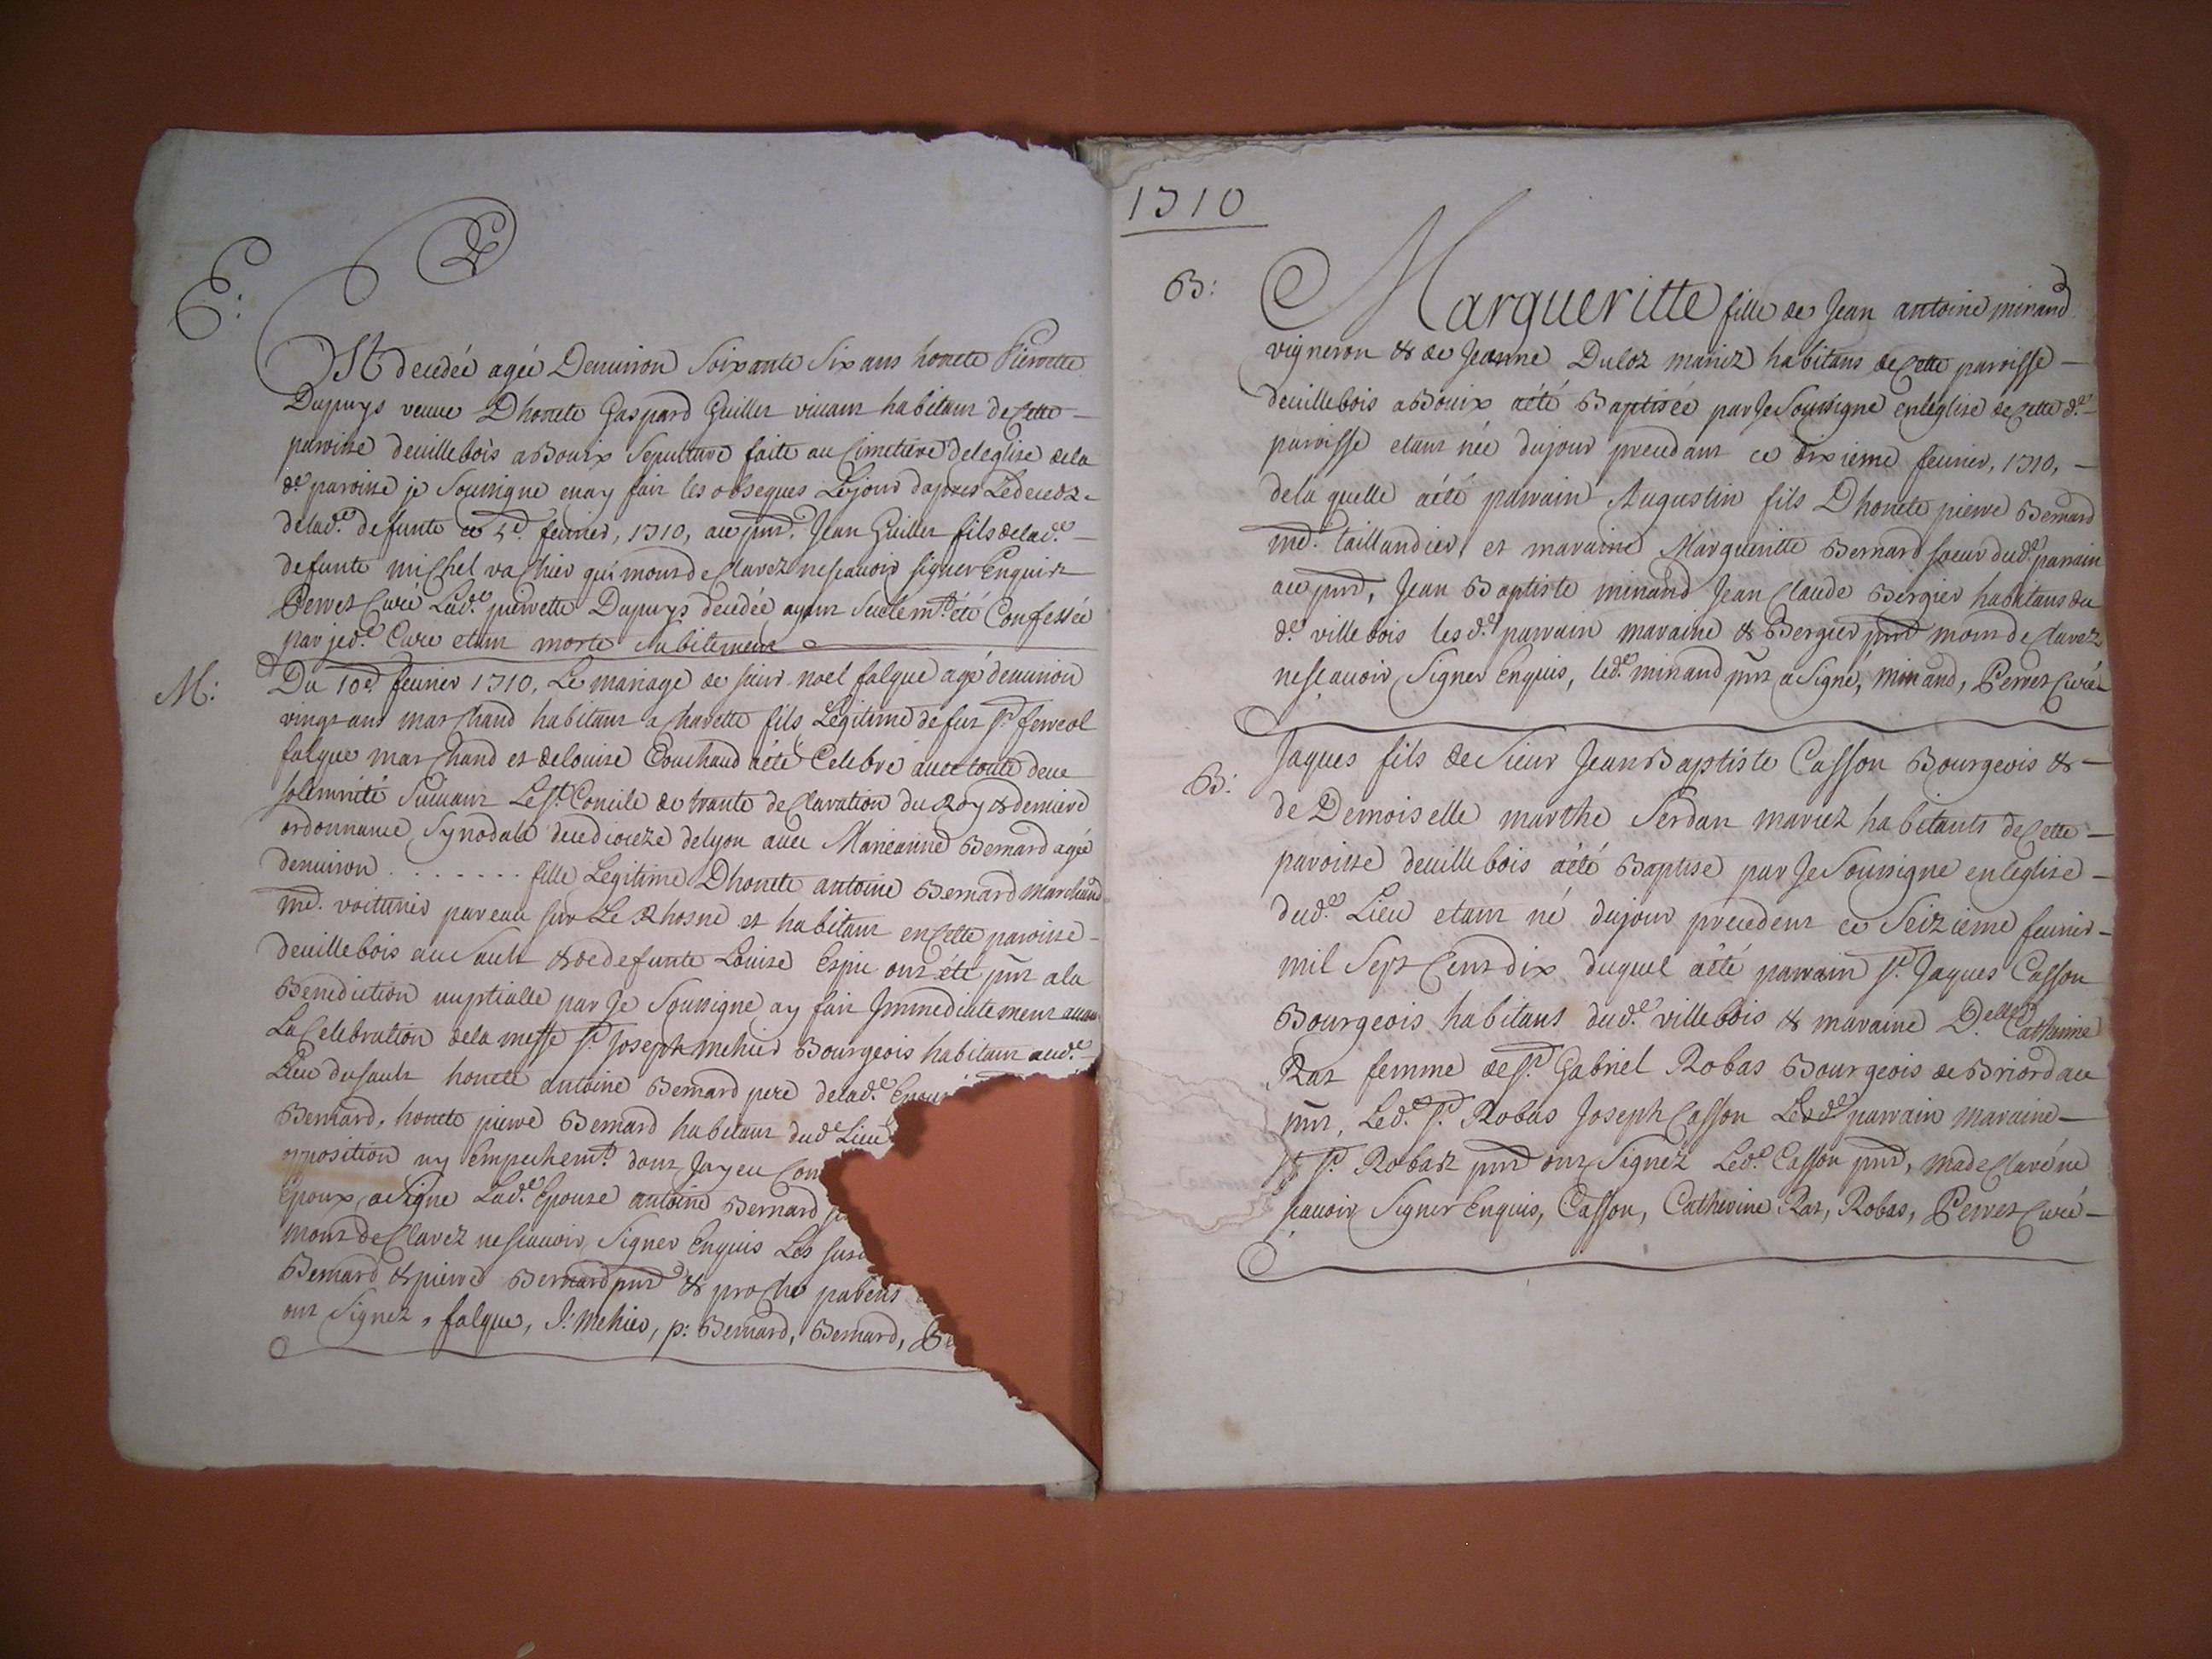 E:
Est decedéé agéé Denuiron Soixante Six ans honete Pierrette
Dupuys veuue Dhonete Gaspard Guiller viuant habitant de Cette
paroisse deuillebois a Bouix Sepulture faite au Cimetiere deleglise dela
d.e paroisse je Soussigne enay fait les obseques Lejour dapres Ledecedz
delad.e defunte ce 5.e feurier, 1710, au pnt. Jean Guiller fils delad.e
defunte michel vachier qui mont de Clarez nescauoir signer Enquirt
Perret Curé Lad.e pierrette Dupuys decedéé ayant Seulem.t été Confessée
par je d.e Curé etant morte subitement
M:
Du 10.e feurier 1710, Le mariage de sieur noel falque agé denuiron
vingt ans marchand habitant a charette fils Legitime de fut s.r ferreol
falque marchand et delouise Couchaud aété Celebré auec toute deue
solemnité Suiuant Le s.t Concile de trante declaration du Roy & derniere
ordonnance Synodale decediocéze delyon auec Marieanne Bernard agéé
denuiron . . . . . . . fille Legitime Dhonete antoine Bernard marchand
md. voiturier par eau sur Le Rhosne et habitant en Cette paroisse
deuillebois au Sault & dedefunte Louise Espie ont été pnt ala
Benediction nuptialle par Je Soussigne ay fait Jmmediatement auant
La Celebration dela messe s.r Joseph mehier Bourgeois habitant aud.e
Lieu dusault honete antoine Bernard pere delad.e
Bernard, honete pierre Bernard habitant dud.e Lieu
opposition ny Empechem.t dont Jay eu
Epoux a signe Lad.e Epouse antoine Bernard
mont de Clarez nescauoir Signer Enquis Les
Bernard & pierre Bernard pnt & proche parens
ont Signez, falque, J: mehier, p: Bernard, Bernard,
1710
B:
Margueritte fille de Jean antoine minand
vigneron & de Jeanne Duloz mariez habitans de Cette paroisse
deuillebois a Bouix aété Baptiséé par Je Soussigne enleglise de Cette d.e
paroisse etant néé dujour precedant ce dixieme feurier, 1710,
dela quelle aété parrain Augustin fils Dhonete pierre Bernard
md. taillandier et maraine Margueritte Bernard soeur dud.e parrain
au pnt, Jean Baptiste minand Jean Claude Bergier habitans du
d.e villebois les d.e parrain maraine & Bergier pnt mont de Clarez
nescauoir Signer Enquis, led.e minand pnt a Signé, minand, Perret Curé
B:
Jaques fils de Sieur Jean Baptiste Casson Bourgeois &
de Demoiselle marthe Serdan mariez habitants de Cette
paroisse deuillebois aété Baptise par Je Soussigne enleglise
dud.e Lieu etant né dujour precedent ce Seizieme feurier
mil Sept Cent dix duquel aété parrain s.r Jaques Casson
Bourgeois habitant dud.e villebois & maraine D.elle Catherine
Rat femme de s.r Gabriel Robas Bourgeois de Briord au
pnt, Led.e s.r Robas Joseph Casson Les d.e parrain maraine
& s.r Robast pnt ont Signez Led.e Casson pnt, ma declaré ne
scauoir Signer Enquis, Casson, Catherine Rat, Robas, Perret Curé